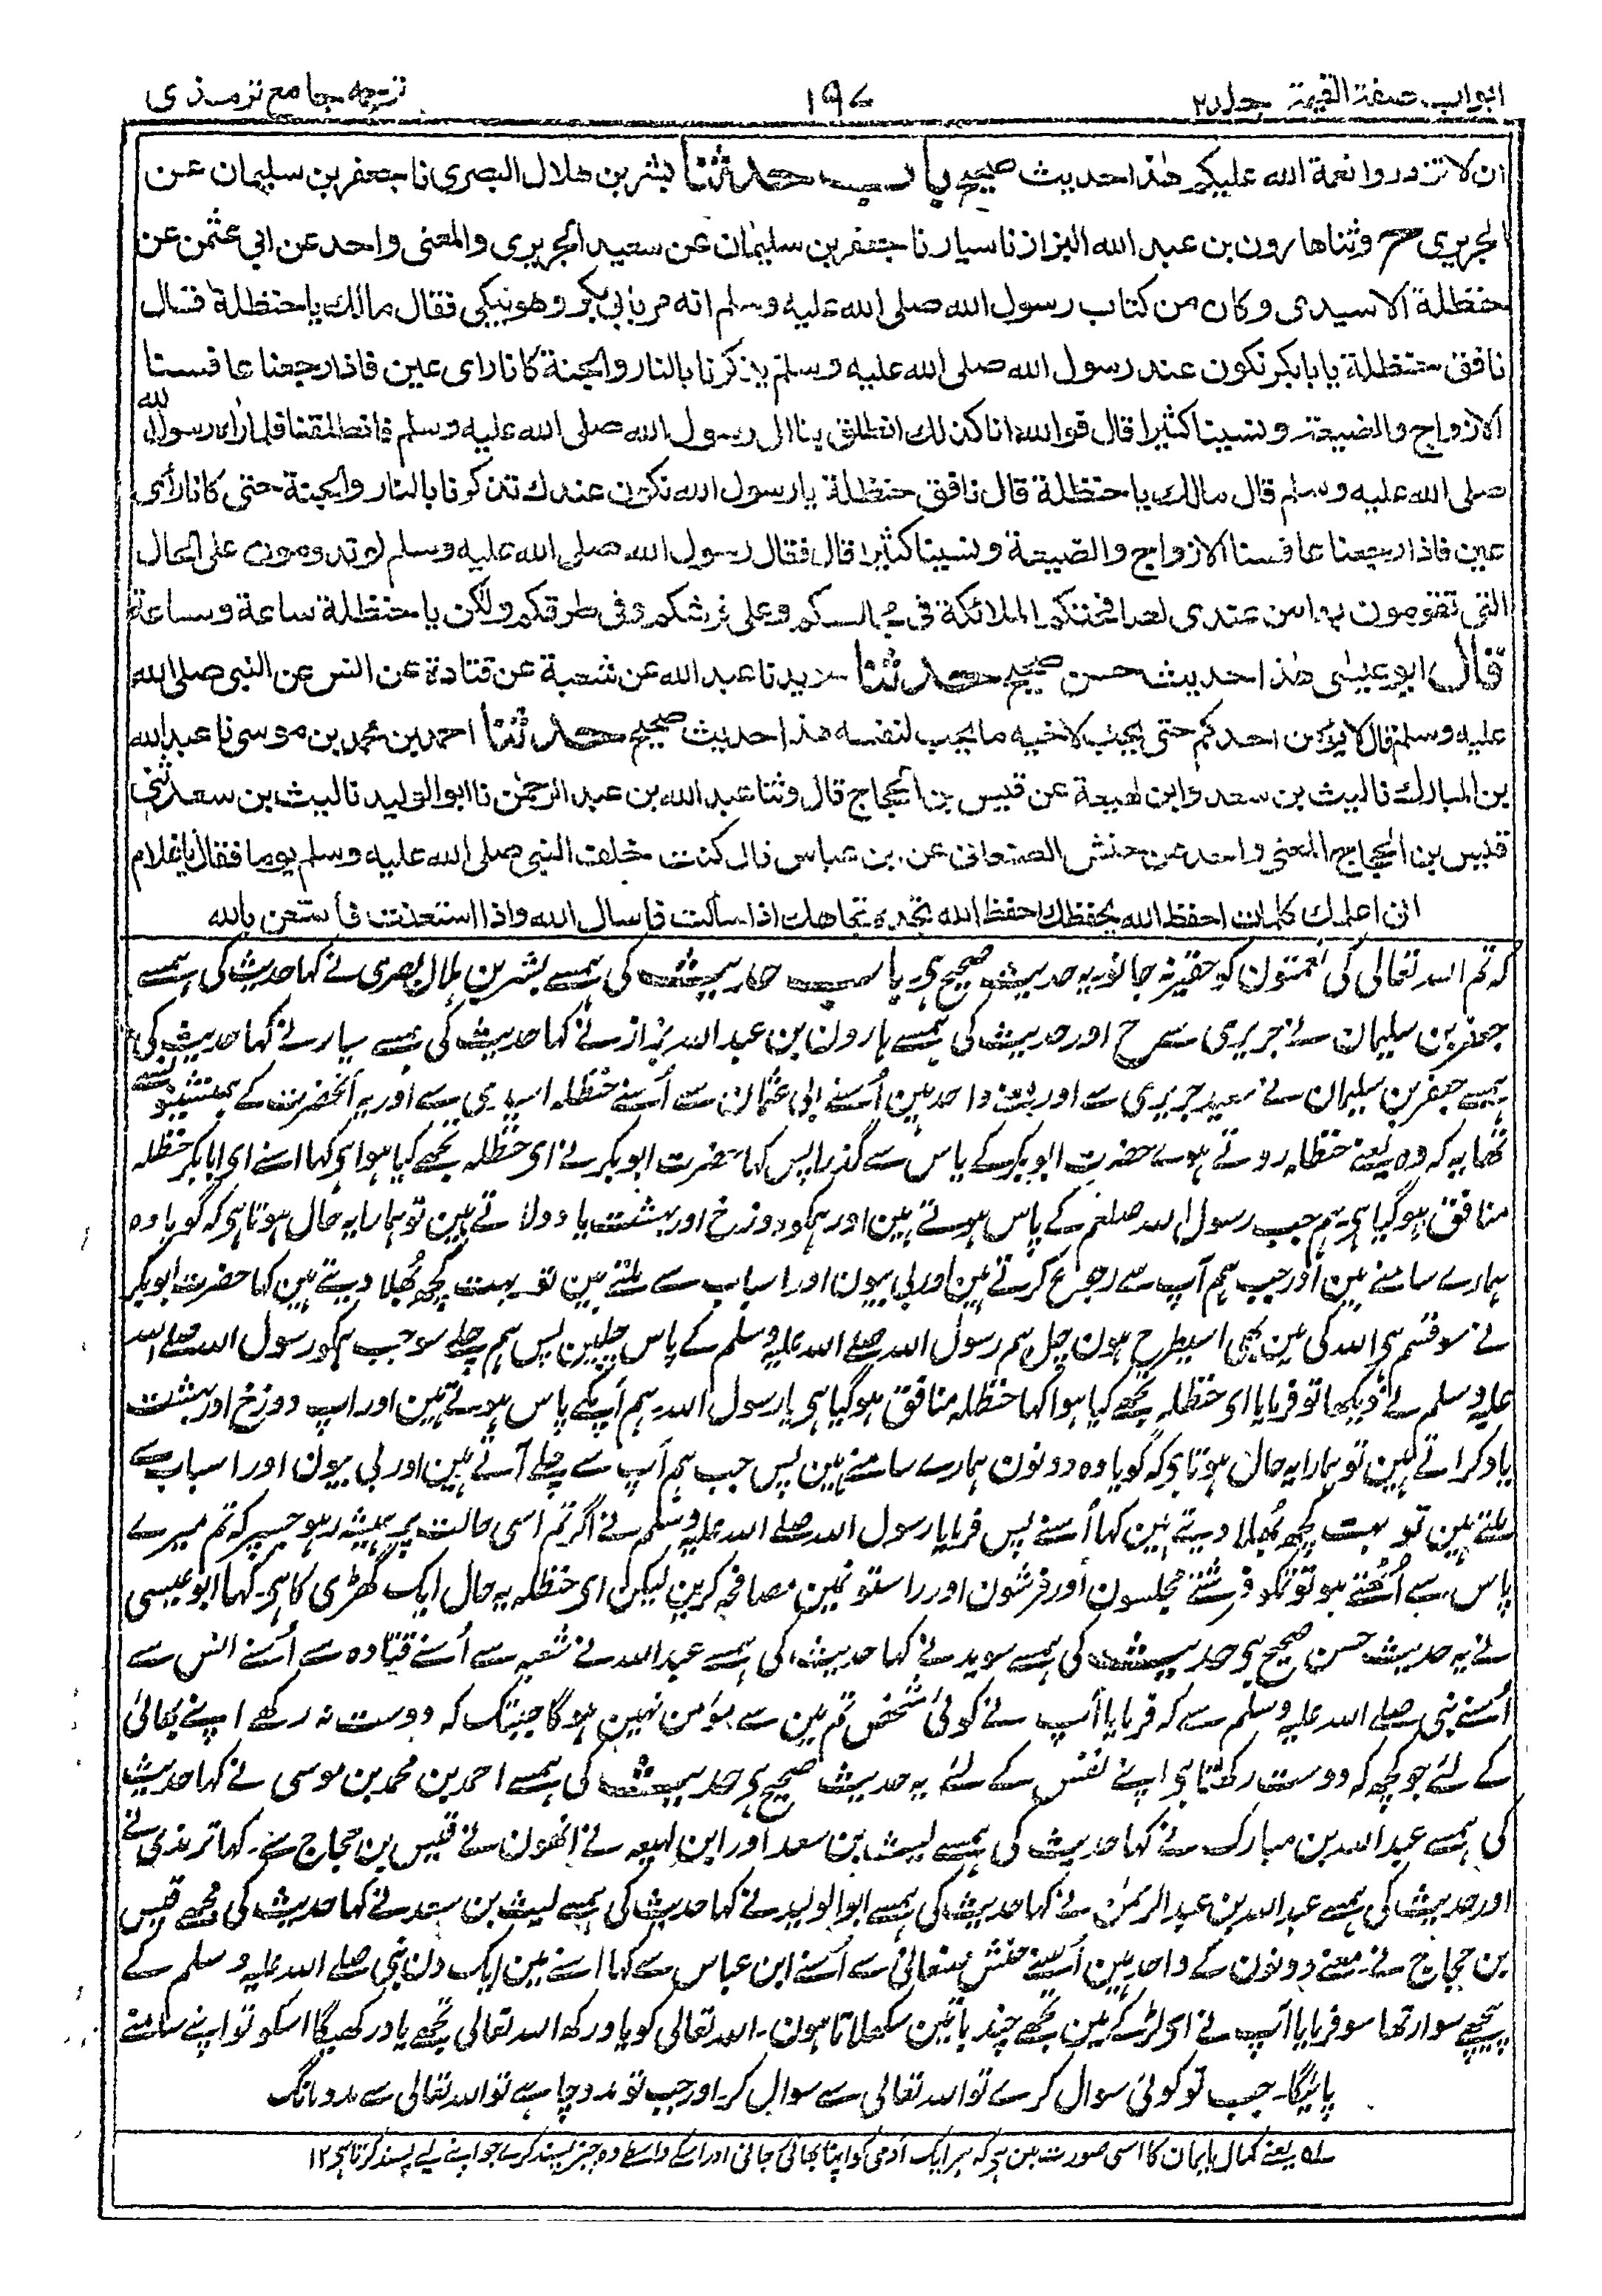 ابواب صفة القیمة جلد ۲
۱۹۷
ترجمه جامع ترمذی
ان لا تزدروا نعمة الله علیکم هذا حدیث صحیح باب حدثنا بشر بن هلال البصری نا جعفر بن سلیمان عن
الجریری ح وثنا هارون بن عبد الله البزاز نا سیار نا جعفر بن سلیمان عن سعید الجریری والمعنی واحد عن ابی عثمن عن
حنظلة الاسیدی وکان من کتاب رسول الله صلی الله علیه وسلم انه مر بابی بکر وهو یبکی فقال مالك یا حنظلة فقال
نافق حنظلة یا ابا بکر نکون عند رسول الله صلی الله علیه وسلم یذکرنا بالنار والجنة کانا رای عین فاذا رجعنا عافسنا
الازواج والضیعة ونسینا کثیرا قال فوالله انا کذلك انطلق بنا الی رسول الله صلی الله علیه وسلم فانطلقنا فلما راه رسول الله
صلی الله علیه وسلم قال مالك یا حنظلة قال نافق حنظلة یا رسول الله نکون عندك تذکرنا بالنار والجنة حتی کانا رأی
عین فاذا رجعنا عافسنا الازواج والضیعة ونسینا کثیرا قال فقال رسول الله صلی الله علیه وسلم لو تدومون علی الحال
التی تقومون بها من عندی لصافحتکم الملائکة فی مجالسکم وعلی فرشکم وفی طرقکم ولکن یا حنظلة ساعة وساعة
قال ابو عیسٰی هذا حدیث حسن صحیح حدثنا سوید نا عبد الله عن شعبة عن قتادة عن انس عن النبی صلی الله
علیه وسلم قال لا یؤمن احدکم حتی یحب لاخیه ما یحب لنفسه هذا حدیث صحیح حدثنا احمد بن محمد بن موسی نا عبد الله
بن المبارك نا لیث بن سعد وابن لهیعة عن قیس بن الحجاج قال وثنا عبد الله بن عبد الرحمٰن نا ابو الولید نا لیث بن سعد ثنی
قیس بن الحجاج المعنی واحد عن حنش الصنعانی عن ابن عباس قال کنت خلف النبی صلی الله علیه وسلم یوما فقال یا غلام
انی اعلمك کلمات احفظ الله یحفظك احفظ الله تجده تجاهك اذا سألت فاسال الله واذا استعنت فأستعن بالله
کہ تم اللہ تعالی کی نعمتون کو حقیر نہ جانو یہ حدیث صحیح ہی باب حدیث کی ہمسے بشر بن ہلال بصری نے کہا حدیث کی ہمسے
جعفر بن سلیمان نے جریری سے ح اور حدیث کی ہمسے ہارون بن عبد اللہ بزاز نے کہا حدیث کی ہمسے سیار نے کہا حدیث کی
ہمسے جعفر بن سلیمان نے سعید جریری سے اور معنے واحد ہین اُسنے ابی عثمان سے اُسنے حنظلہ اسیدی سے اور یہ آنحضرت کے
تھا یہ کہ وہ یعنے حنظلہ روتے ہوے حضرت ابوبکر کے پاس سے گذرا پس کہا حضرت ابوبکر نے ای حنظلہ تجھے کیا ہوا ہی کہا اسنے ای ابا بکر حنظلہ
منافق ہوگیا ہی ہم جب رسول اللہ صلعم کے پاس ہوتے ہین اور ہمکو دوزخ اور بہشت یاد دلاتے ہین تو ہمارا یہ حال ہوتا ہی کہ گویا وہ
ہمارے سامنے ہین اور جب ہم آپ سے رجوع کرتے ہین اور بی بیون اور اسباب سے ملتے ہین تو بہت کچھ بھلا دیتے ہین کہا حضرت ابوبکر
نے سو قسم ہی اللہ کی مین بھی اسیطرح ہون چل ہم رسول اللہ صلے اللہ علیہ وسلم کے پاس چلین پس ہم چلے سو جب ہمکو رسول اللہ صلے اللہ
علیہ وسلم نے دیکھا تو فرمایا ای حنظلہ تجھے کیا ہوا کہا حنظلہ منافق ہوگیا ہی یا رسول اللہ ہم آپکے پاس ہوتے ہین اور آپ دوزخ اور بہشت
یاد کراتے ہین تو ہمارا یہ حال ہوتا ہی کہ گویا وہ دونون ہمارے سامنے ہین پس جب ہم آپ سے چلے آتے ہین اور بی بیون اور اسباب سے
ملتے ہین تو بہت کچھ بھلا دیتے ہین کہا اُسنے پس فرمایا رسول اللہ صلے اللہ علیہ وسلم نے اگر تم اسی حالت پر ہمیشہ رہو جسپر کہ تم میرے
پاس سے اُٹھتے ہو تو تمکو فرشتے مجلسون اور فرشون اور راستو نمین مصافحہ کرین لیکن ای حنظلہ یہ حال ایک گھڑی کا ہی۔ کہا ابو عیسی
نے یہ حدیث حسن صحیح ہی حدیث کی ہمسے سوید نے کہا حدیث کی ہمسے عبد اللہ نے شعبہ سے اُسنے قتادہ سے اُسنے انس سے
اُسنے نبی صلے اللہ علیہ وسلم سے کہ فرمایا آپ نے کوئی شخص تم مین سے مؤمن نہین ہوگا جبتک کہ دوست نہ رکھے اپنے بھائی
کے لئے جو کچھ کہ دوست رکھتا ہی اپنے نفس کے لئے یہ حدیث صحیح ہی حدیث کی ہمسے احمد بن محمد بن موسی نے کہا حدیث
کی ہمسے عبد اللہ بن مبارک نے کہا حدیث کی ہمسے لیث بن سعد اور ابن لہیعہ نے انھون نے قیس بن حجاج سے۔ کہا ترمذی نے
اور حدیث کی ہمسے عبد اللہ بن عبد الرحمن نے کہا حدیث کی ہمسے ابو الولید نے کہا حدیث کی ہمسے لیث بن سعد نے کہا حدیث کی مجھے قیس
بن حجاج نے۔ معنے دونون کے واحد ہین اُسنے حنش صنعانی سے اُسنے ابن عباس سے کہا اسنے مین ایک دن نبی صلے اللہ علیہ وسلم کے
پیچھے سوار تھا سو فرمایا آپ نے ای لڑکے مین تجھے چند باتین سکھلاتا ہون۔ اللہ تعالی کو یاد رکھ اللہ تعالی تجھے یاد رکھیگا اسکو تو اپنے سامنے
پائیگا۔ جب تو کوئی سوال کرے تو اللہ تعالی سے سوال کر۔ اور جب تو مدد چاہے تو اللہ تعالی سے مدد مانگ
سلہ یعنے کمال ایمان کا اسی صورت مین ہی کہ ہر ایک آدمی کو اپنا بھائی جانی اور اسکے واسطے وہ چیز پسند کرے جو اپنے لیے پسند کرتا ہی ۱۲